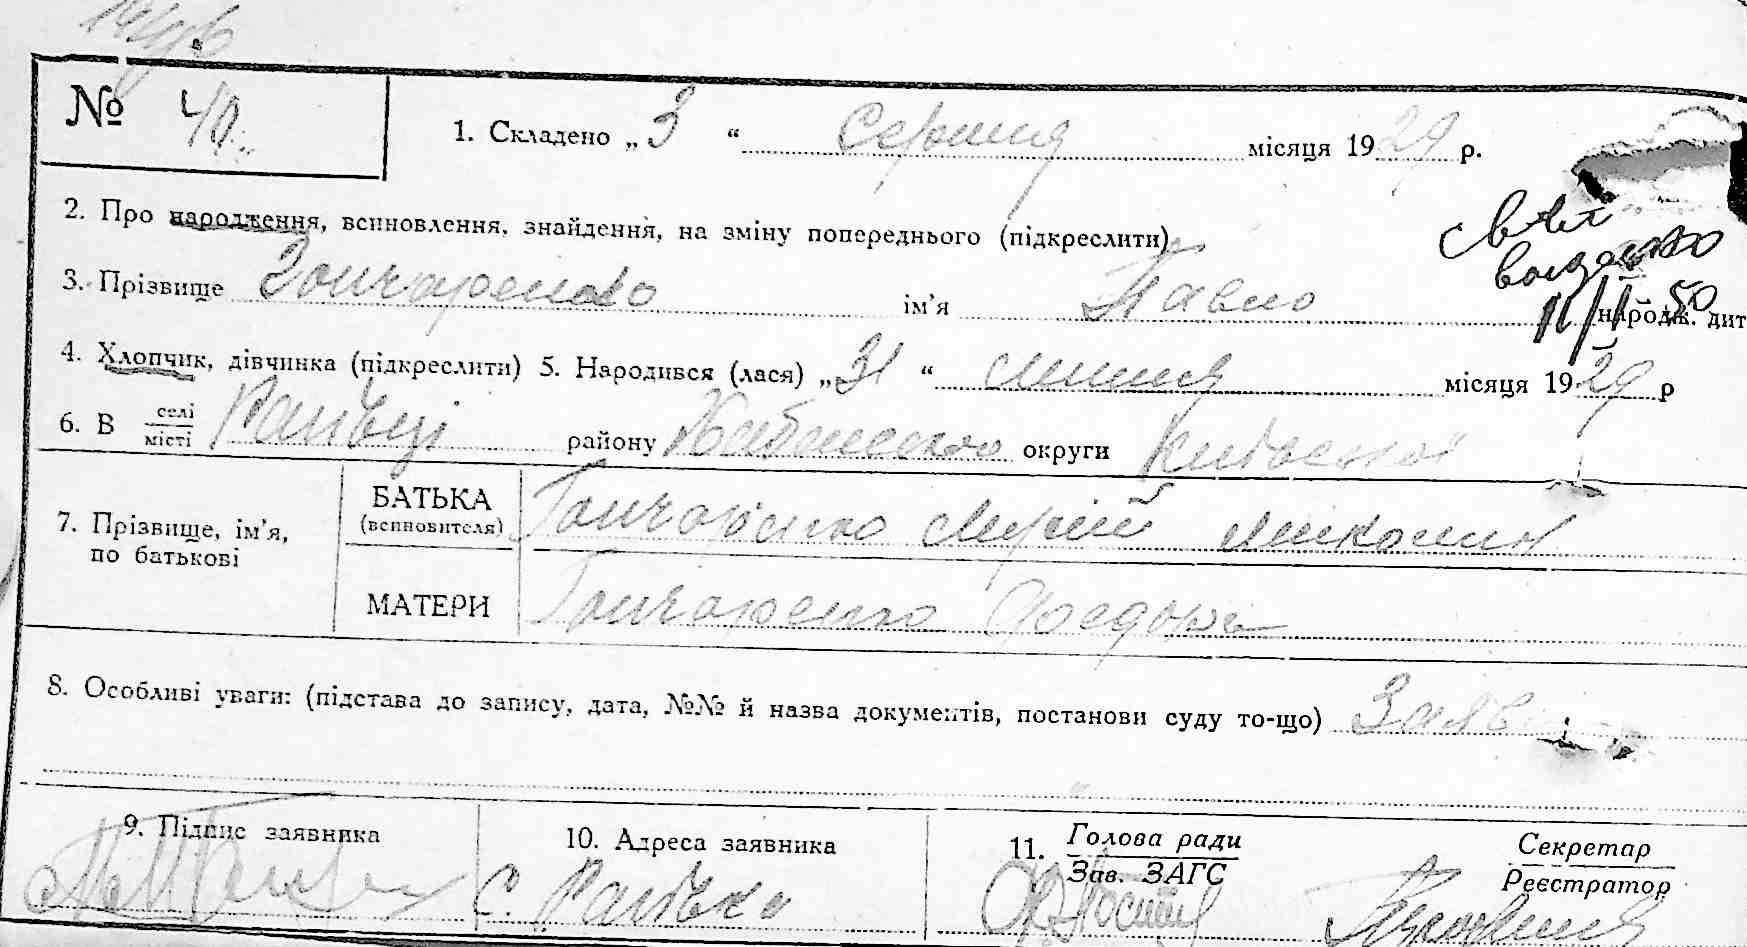 № 40
1. Складено „ 3 “ Серпня місяця 1929 р.
2. Про народження, всиновлення, знайдення, на зміну попереднього (підкреслити)
свид
выдано
11/ 50
3. Прізвище Гончаренко ім’я Павло народж. дит
4. Хлопчик, дівчинка (підкреслити) 5. Народився (лася) „ 31 “ липня місяця 1929 р
6. В селі місті району Хабенського округи Київської
7. Прізвище, ім’я, по батькові
БАТЬКА (всиновителя) Гончаренко Миколин
МАТЕРИ Гончаренко
8. Особливі уваги: (підстава до запису, дата, №№ й назва документів, постанови суду то-що) Заяв
9. Підпис заявника
10. Адреса заявника
с.
11. Голова ради
Зав. ЗАГС
Секретар
Реєстратор